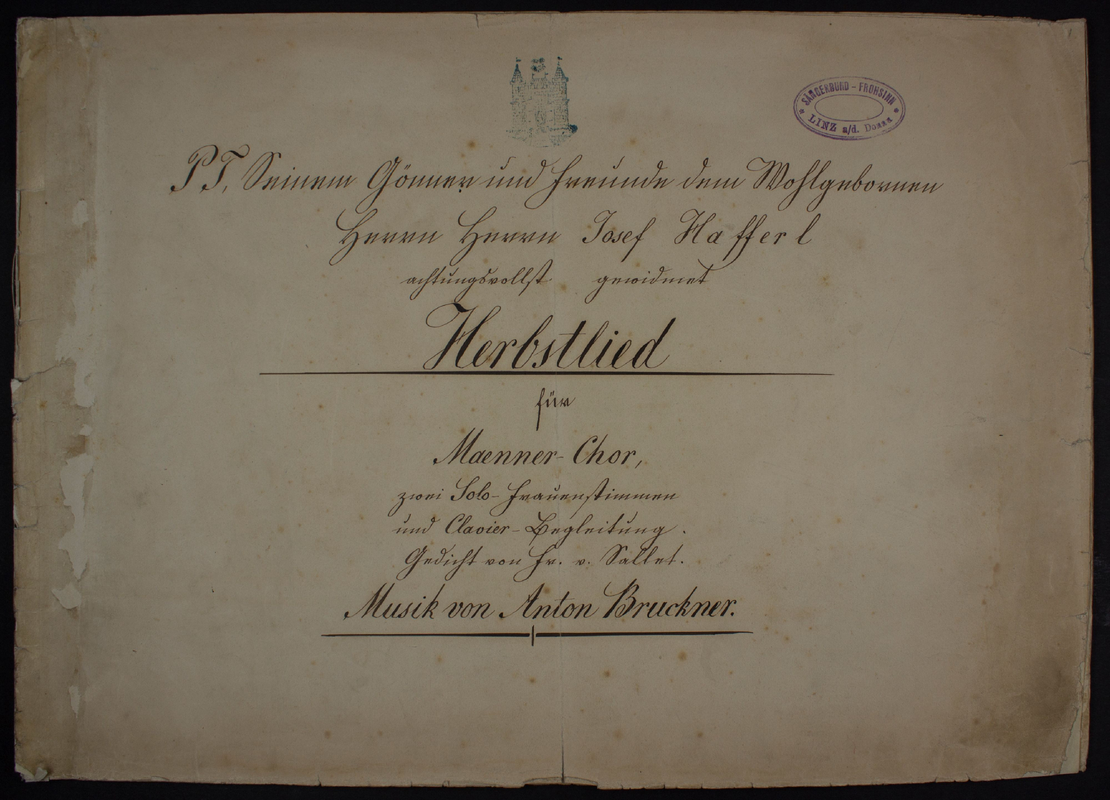 SÄNGERBUND - FROHSINN
LINZ a/d. Donau
PT. Seinem Gönner und Freunde dem Wohlgebornen
Herrn Herrn Josef Hafferl
achtungsvollst gewidmet
Herbstlied
für
Maenner-Chor,
zwei Solo-Frauenstimmen
und Clavier-Begleitung.
Gedicht von Fr. v. Sallet.
Musik von Anton Bruckner.